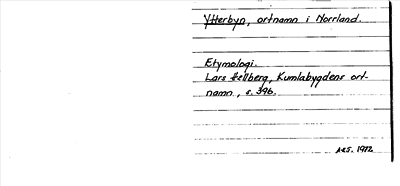 Ytterbyn, ortnamn i Norrland.
Etymologi.
Lars Hellberg, Kumlabygdens ort-
namn, s. 396.
1972